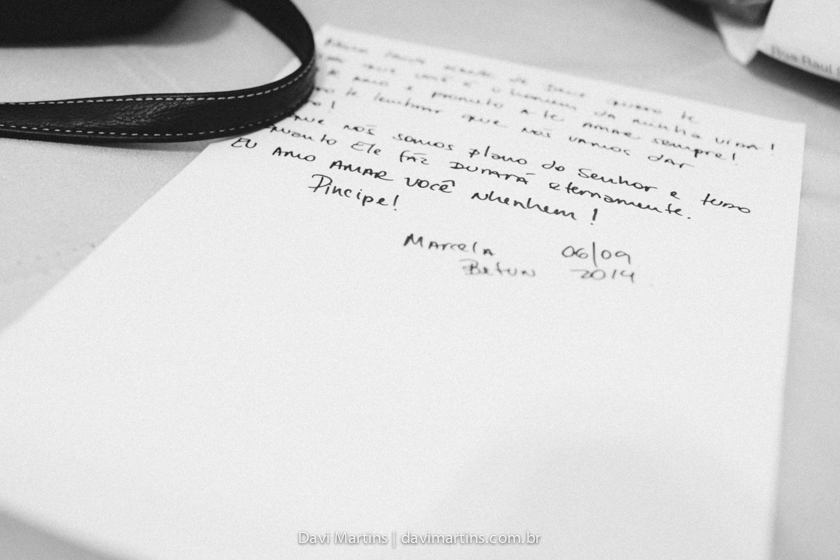 de Deus quero te
que você é o homem da minha vida!
amo e prometo a te amar sempre!
te lembrar que nós vamos dar
!
que nós somos plano do Senhor e tudo
quanto Ele faz DURARÁ eternamente.
EU AMO AMAR VOCÊ Nhenhem!
Pincipe!
Marcela 06/09
2014
Rua Raul
Davi Martins | davimartins.com.br